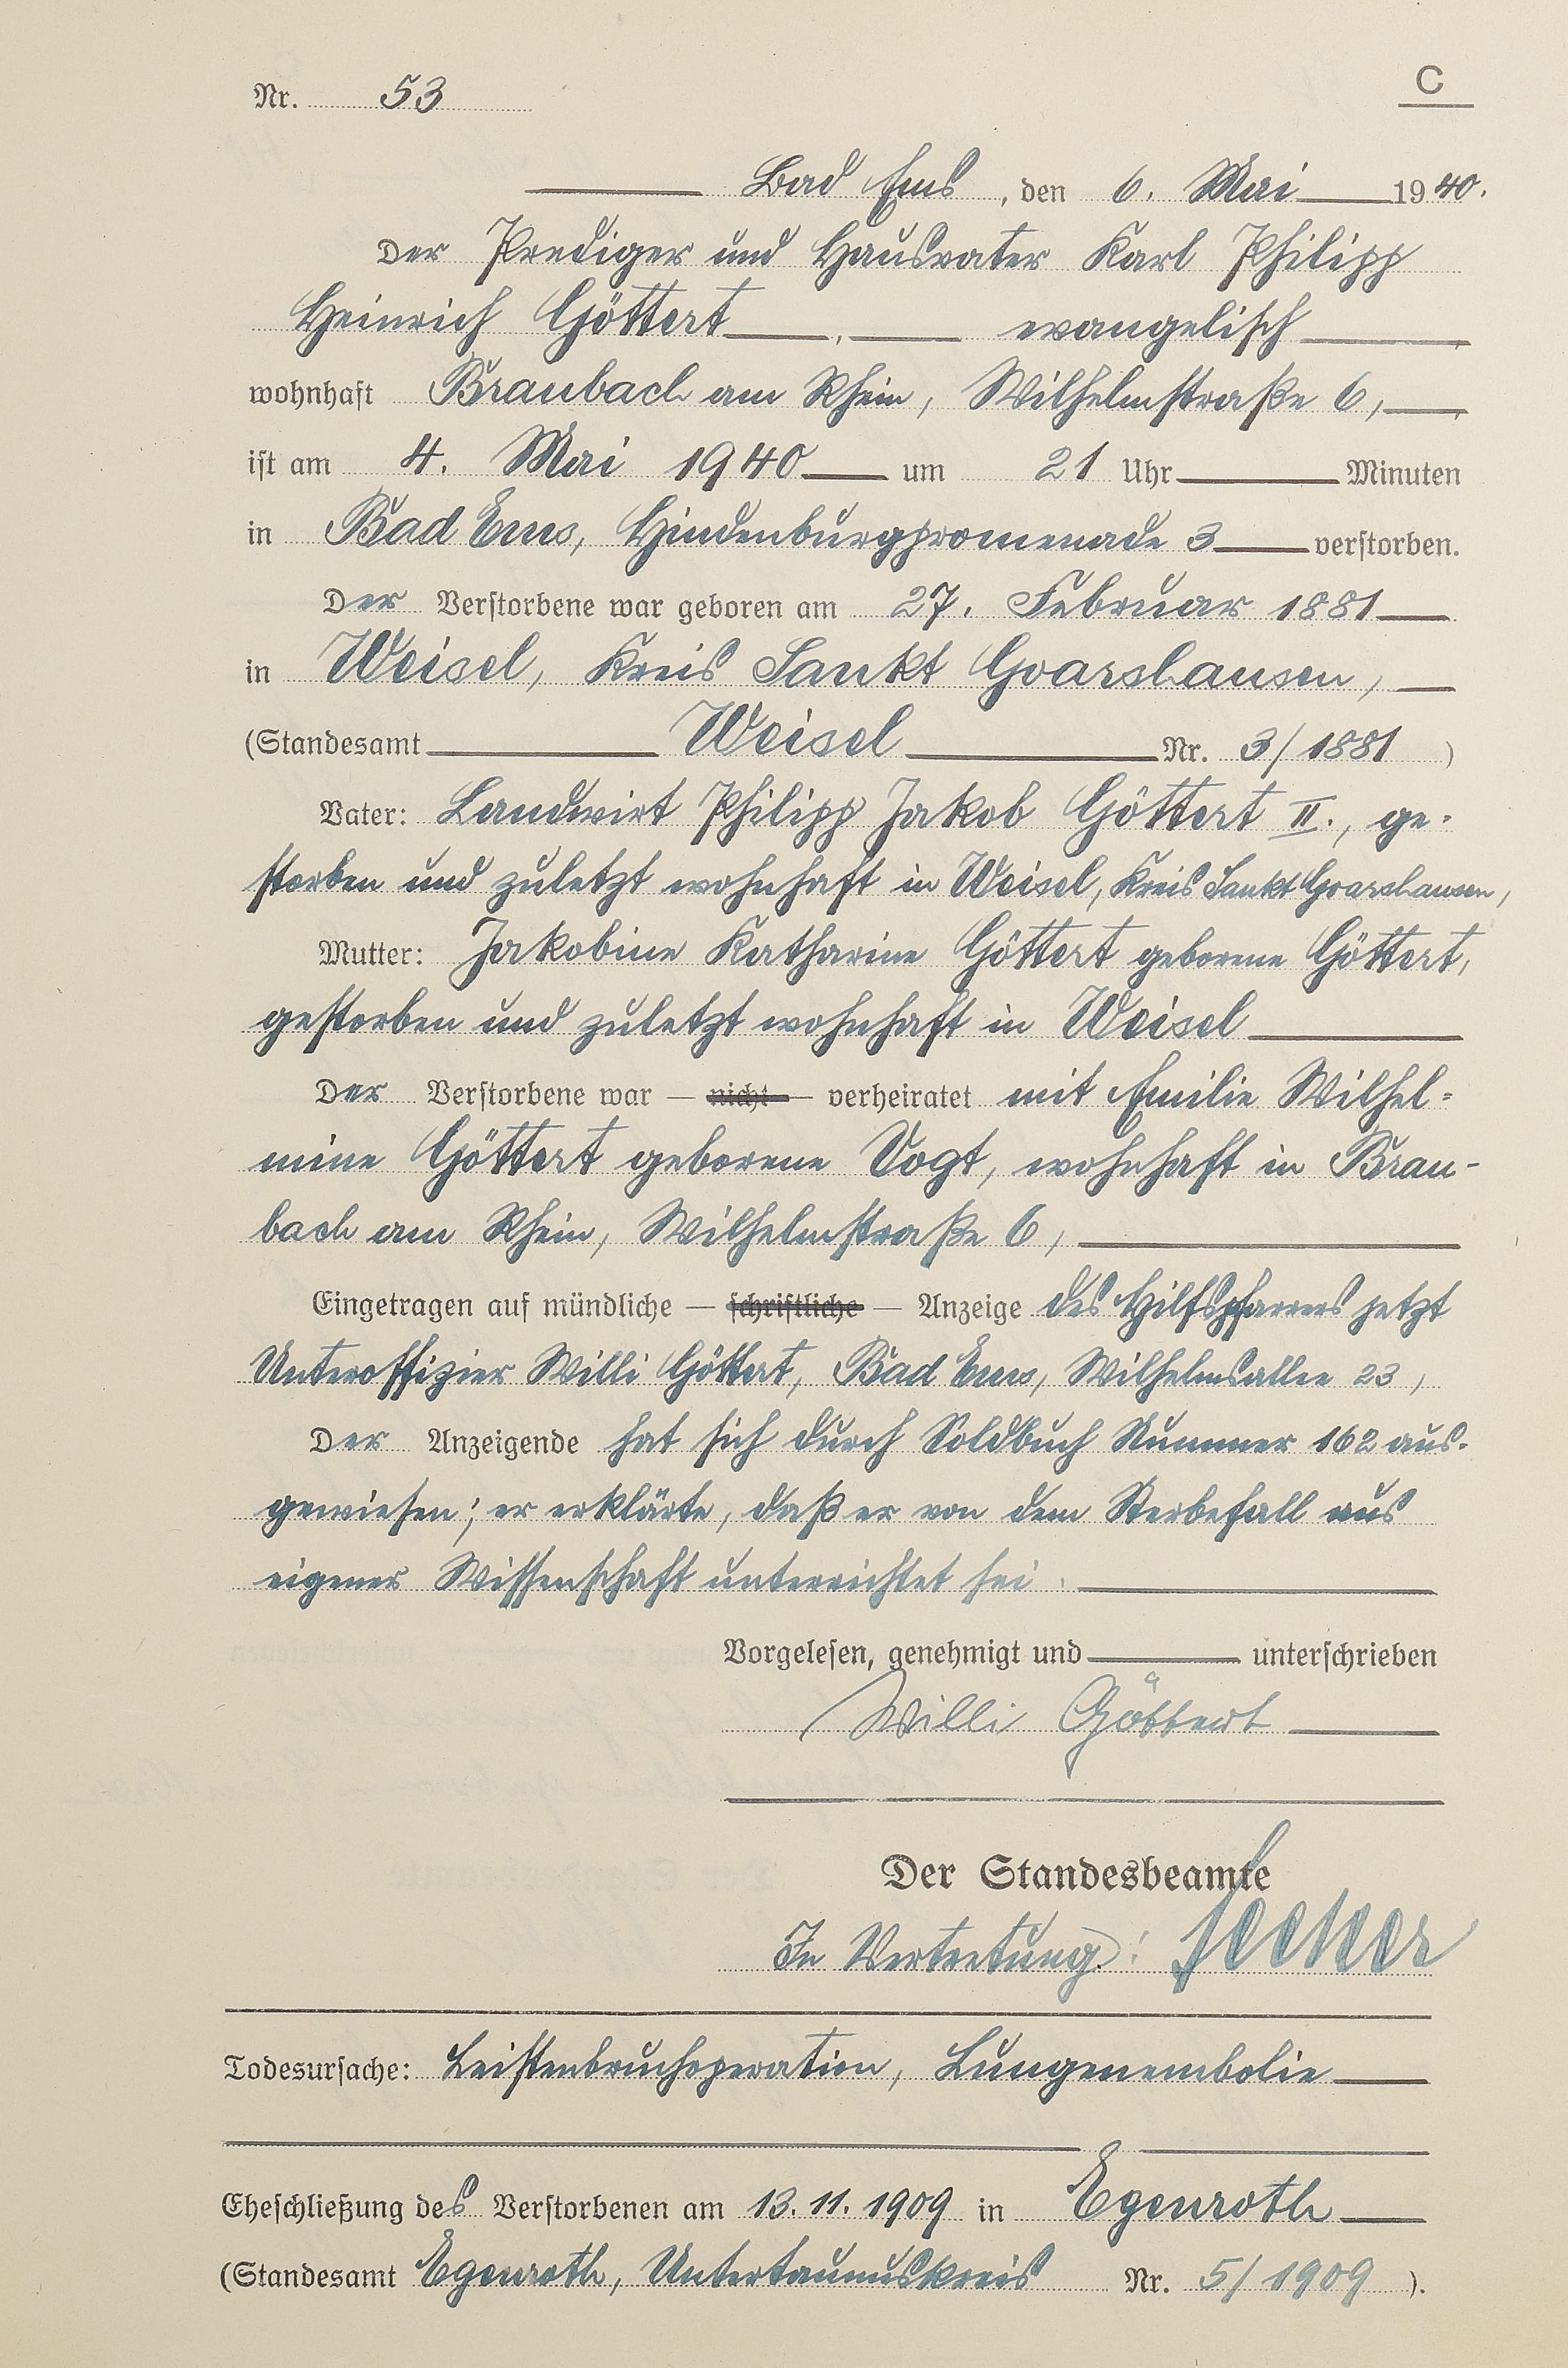 Nr. 53
C
Bad Ems, den 6. Mai 1940.
Der Prediger und Hausvater Karl Philipp
Heinrich Göttert, evangelisch,
wohnhaft Braubach am Rhein, Wilhelmstraße 6,
ist am 4. Mai 1940 um 21 Uhr Minuten
in Bad Ems, Hindenburgpromenade 3 verstorben.
Der Verstorbene war geboren am 27. Februar 1881
in Weisel, Kreis Sankt Goarshausen,
(Standesamt Weisel Nr. 3/1881)
Vater: Landwirt Philipp Jakob Göttert II., ge-
storben und zuletzt wohnhaft in Weisel, Kreis Sankt Goarshausen,
Mutter: Jakobine Katharine Göttert geborene Göttert,
gestorben und zuletzt wohnhaft in Weisel
Der Verstorbene war — nicht — verheiratet mit Emilie Wilhel=
mine Göttert geborene Vogt, wohnhaft in Brau-
bach am Rhein, Wilhelmstraße 6,
Eingetragen auf mündliche — schriftliche — Anzeige des Hilfspfarrers jetzt
Unteroffizier Willi Göttert, Bad Ems, Wilhelmsallee 23,
Der Anzeigende hat sich durch Soldbuch Nummer 162 aus-
gewiesen; er erklärte, daß er von dem Sterbefall aus
eigener Wissenschaft unterrichtet sei.
Vorgelesen, genehmigt und unterschrieben
Willi Göttert
Der Standesbeamte
In Vertretung:
Todesursache: Leistenbruchoperation, Lungenembolie
Eheschließung des Verstorbenen am 13.11.1909 in Egenroth
(Standesamt Egenroth, Untertaunuskreis Nr. 5/1909).